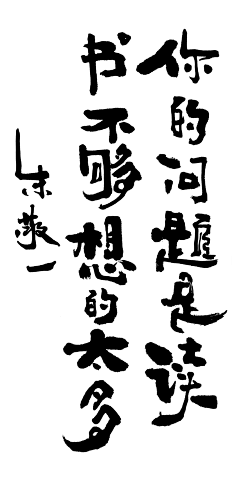 你的问题是读
书不够想的太多
朱敬一